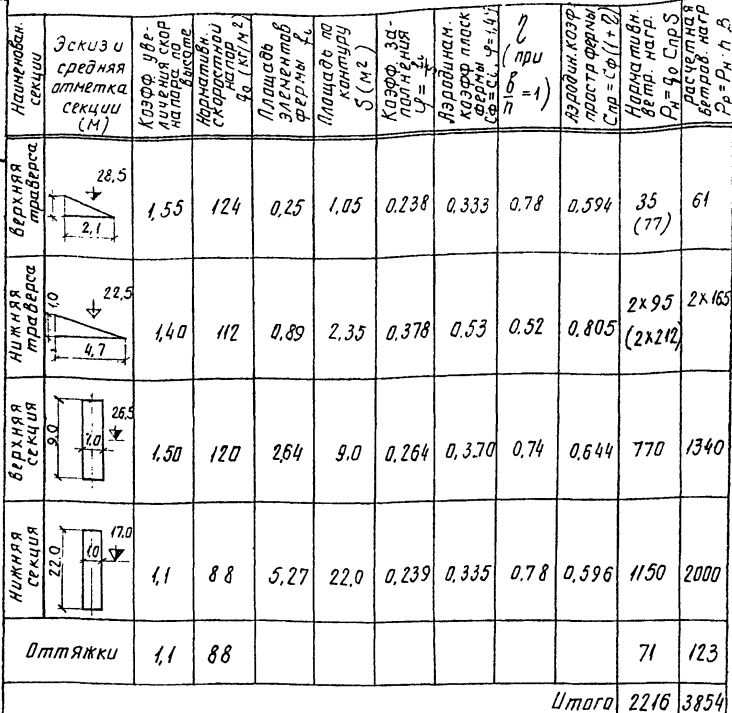 Наименован. секции
Эскиз и средняя отметка секции (М)
Коэфф. увеличения скор напора по высоте
Нормативн. скоростной напор q₀ (кг/м²)
Площадь элементов фермы fᵢ
Площадь по контуру S (м²)
Коэфф. заполнения φ =
Аэродинам. коэфф плоск фермы Cф=Ci φ=1,4φ
η (при b/h =1)
Аэродин. коэф. простр фермы Cпр= Cф(1+η)
Нормативн. ветр. нагр. Pн= q₀ Cпр S
расчетная ветров. нагр Pр=Pн·n·β
Верхняя траверса
28,5
2,1
1,55
124
0,25
1,05
0,238
0,333
0.78
0,594
35
(77)
61
Нижняя траверса
1,0
22,5
4,7
1,40
112
0,89
2,35
0,378
0.53
0.52
0,805
2×95
(2×212)
2×165
Верхняя секция
9,0
1,0
26,5
1,50
120
2,64
9.0
0,264
0,370
0,74
0,644
770
1340
Нижняя секция
22,0
1,0
17,0
1,1
88
5,27
22,0
0,239
0,335
0.78
0,596
1150
2000
Оттяжки
1,1
88
71
123
Итого
2216
3854